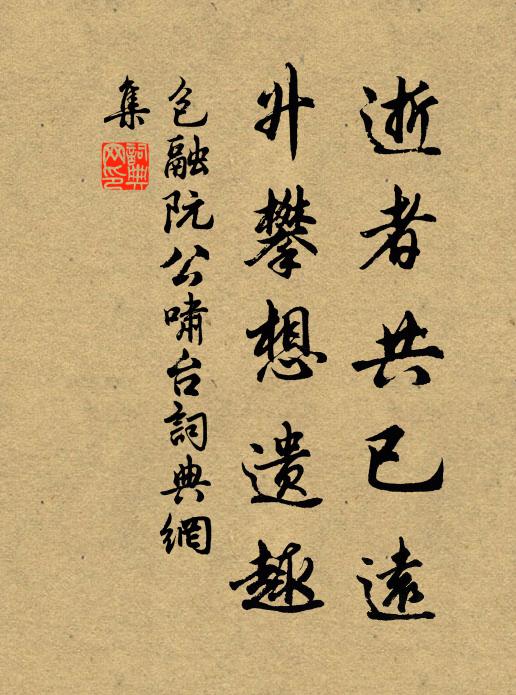 逝者共已遠
升攀想遗趣
包融阮公嘯台詞典網
集
詞典
网印